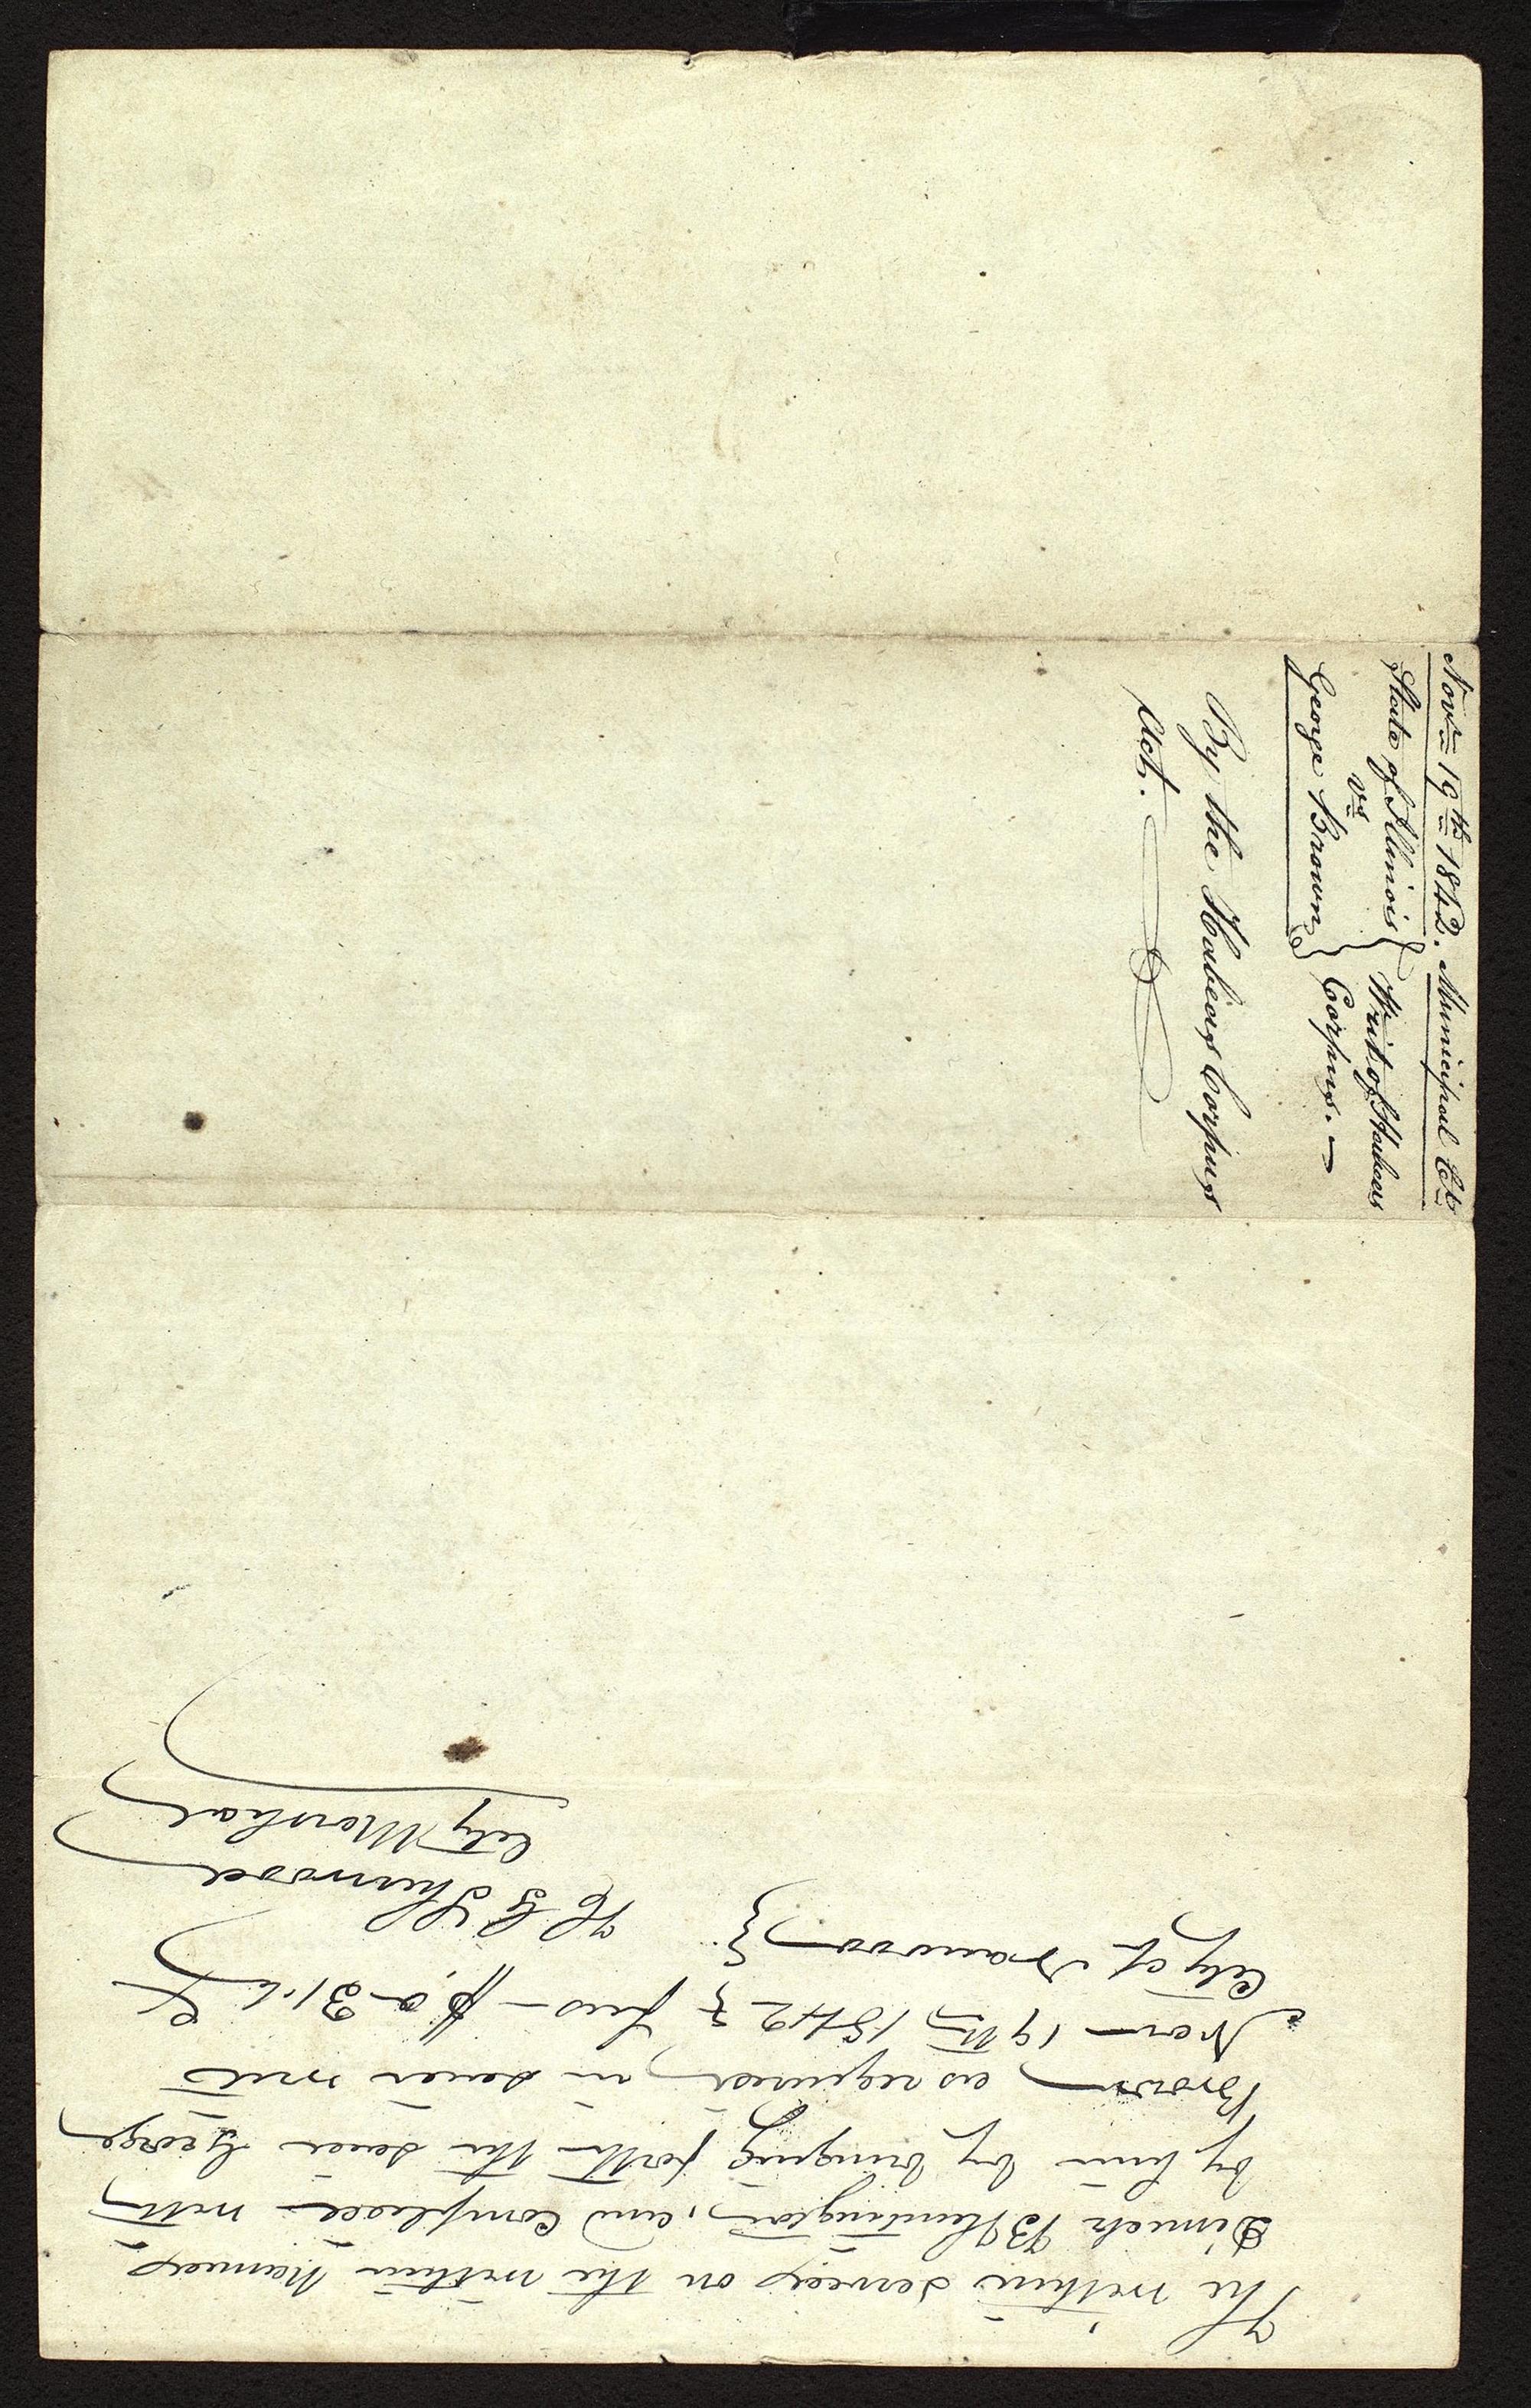 Novr 19th 1842. Municipal Ct
State of Illinois } Writ of Habeas
vs
George Brown } Corpus. —
By the Habeas Corpus
Act.
The within served on the within named
Dimick B Huntington, and complied with
by him by bringing forth the said George
Brown as required in said writ
Nov 19th 1842 } fees
City of Nauvoo } H G Sherwood
City Marshal